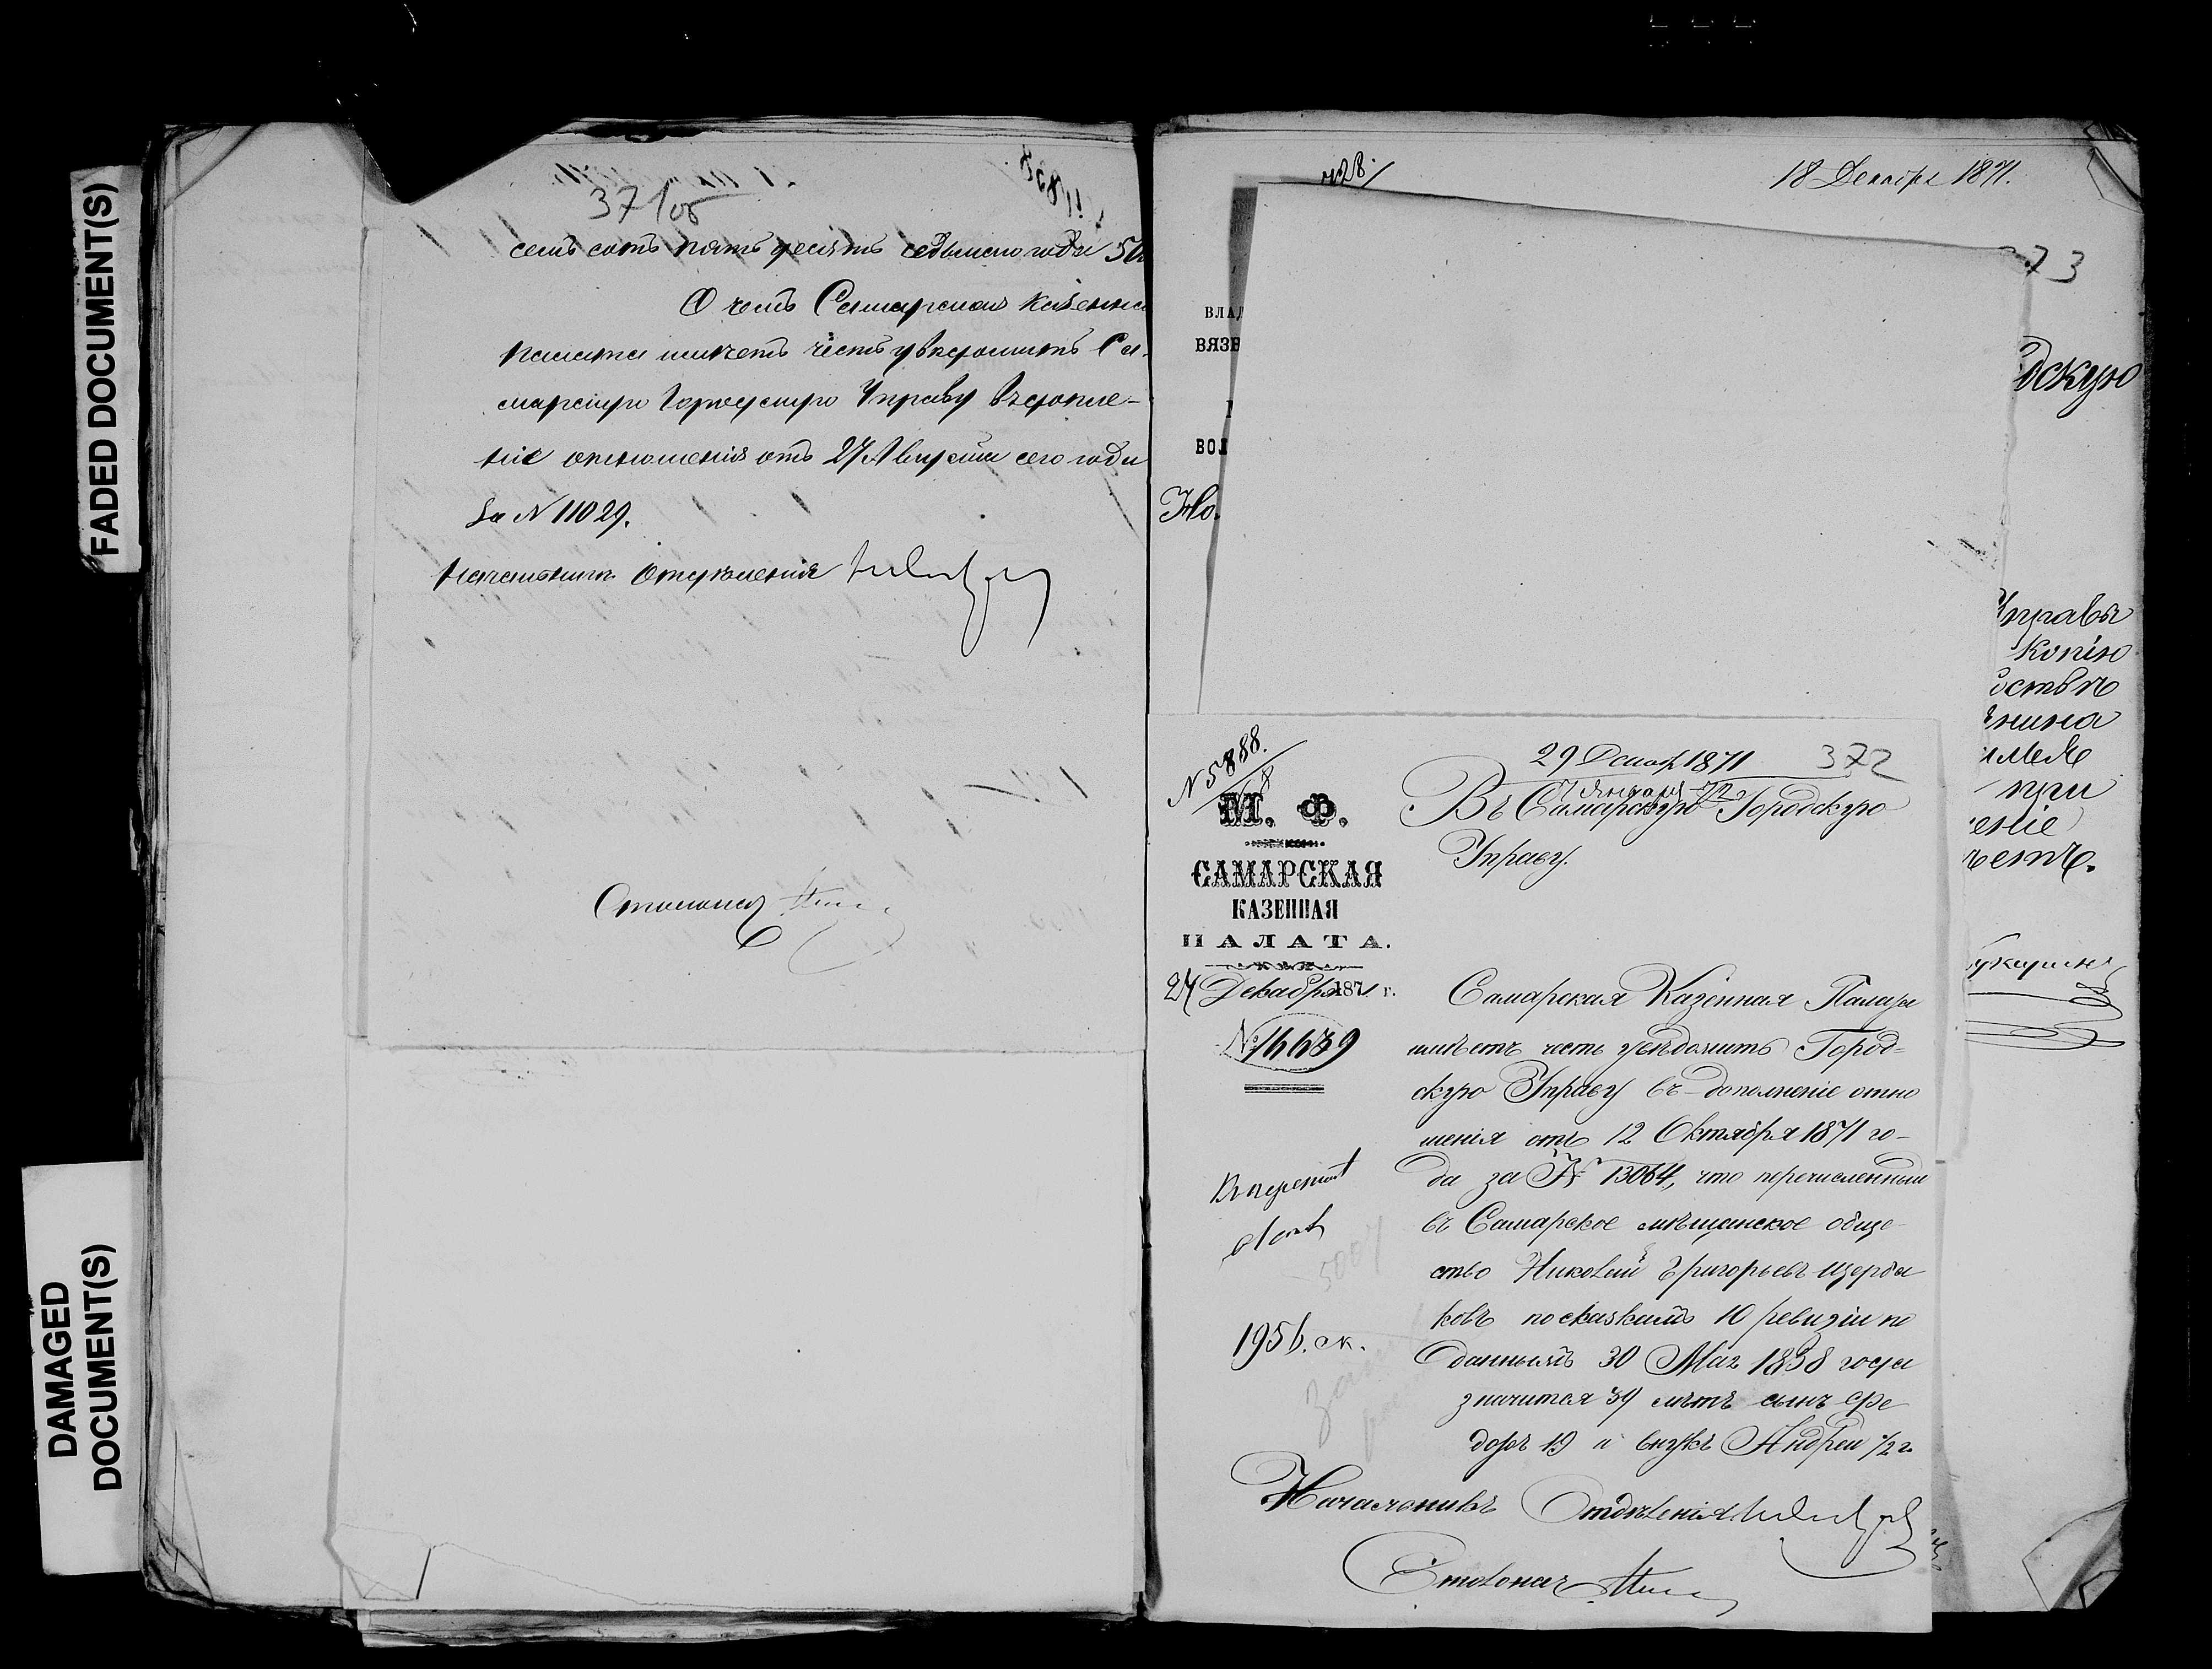 FADED DOCUMENT(S)
DAMAGED
DOCUMENT(S)
371 об
семь сотъ пять десятъ седьмого года 50
О чемъ Самарская Казенна
Палата имѣетъ честь увѣдомить Са-
марскую Городскую Управу въ дополне-
ніе отношенія отъ 27 Августа сего года
за N 11029.
Начальникъ Отдѣленія
Столонач
428
18 Декабря 1871.
73
ВЛАД
ВЯЗЕ
ВОЛ
Но.
дскую
Управы
копію
ствѣ
нина
имѣе
при
еніе
ѣетъ.
N 5888.
29 Декабр 1871
372
7 Января 72
М. Ф.
САМАРСКАЯ
КАЗЕННАЯ
ПАЛАТА.
27 Декабря 1871 г.
№ 16639
1956. ск.
Въ Самарскую Городскую
Управу.
Самарская Казенная Палата
имѣетъ честь увѣдомить Город=
скую Управу въ дополненіе отно
шенія отъ 12 Октября 1871 го-
да за № 13064, что перечисленный
въ Самарское мѣщанское обще-
ство Николай Григорьевъ Щерба
ковъ по сказкамъ 10 ревизіи по
даннымъ 30 Мая 1858 года
значится 39 лѣтъ сынъ Ѳе
доръ 19 и внукъ Андрей 1/2 г.
Начальникъ Отдѣленія
Столонач